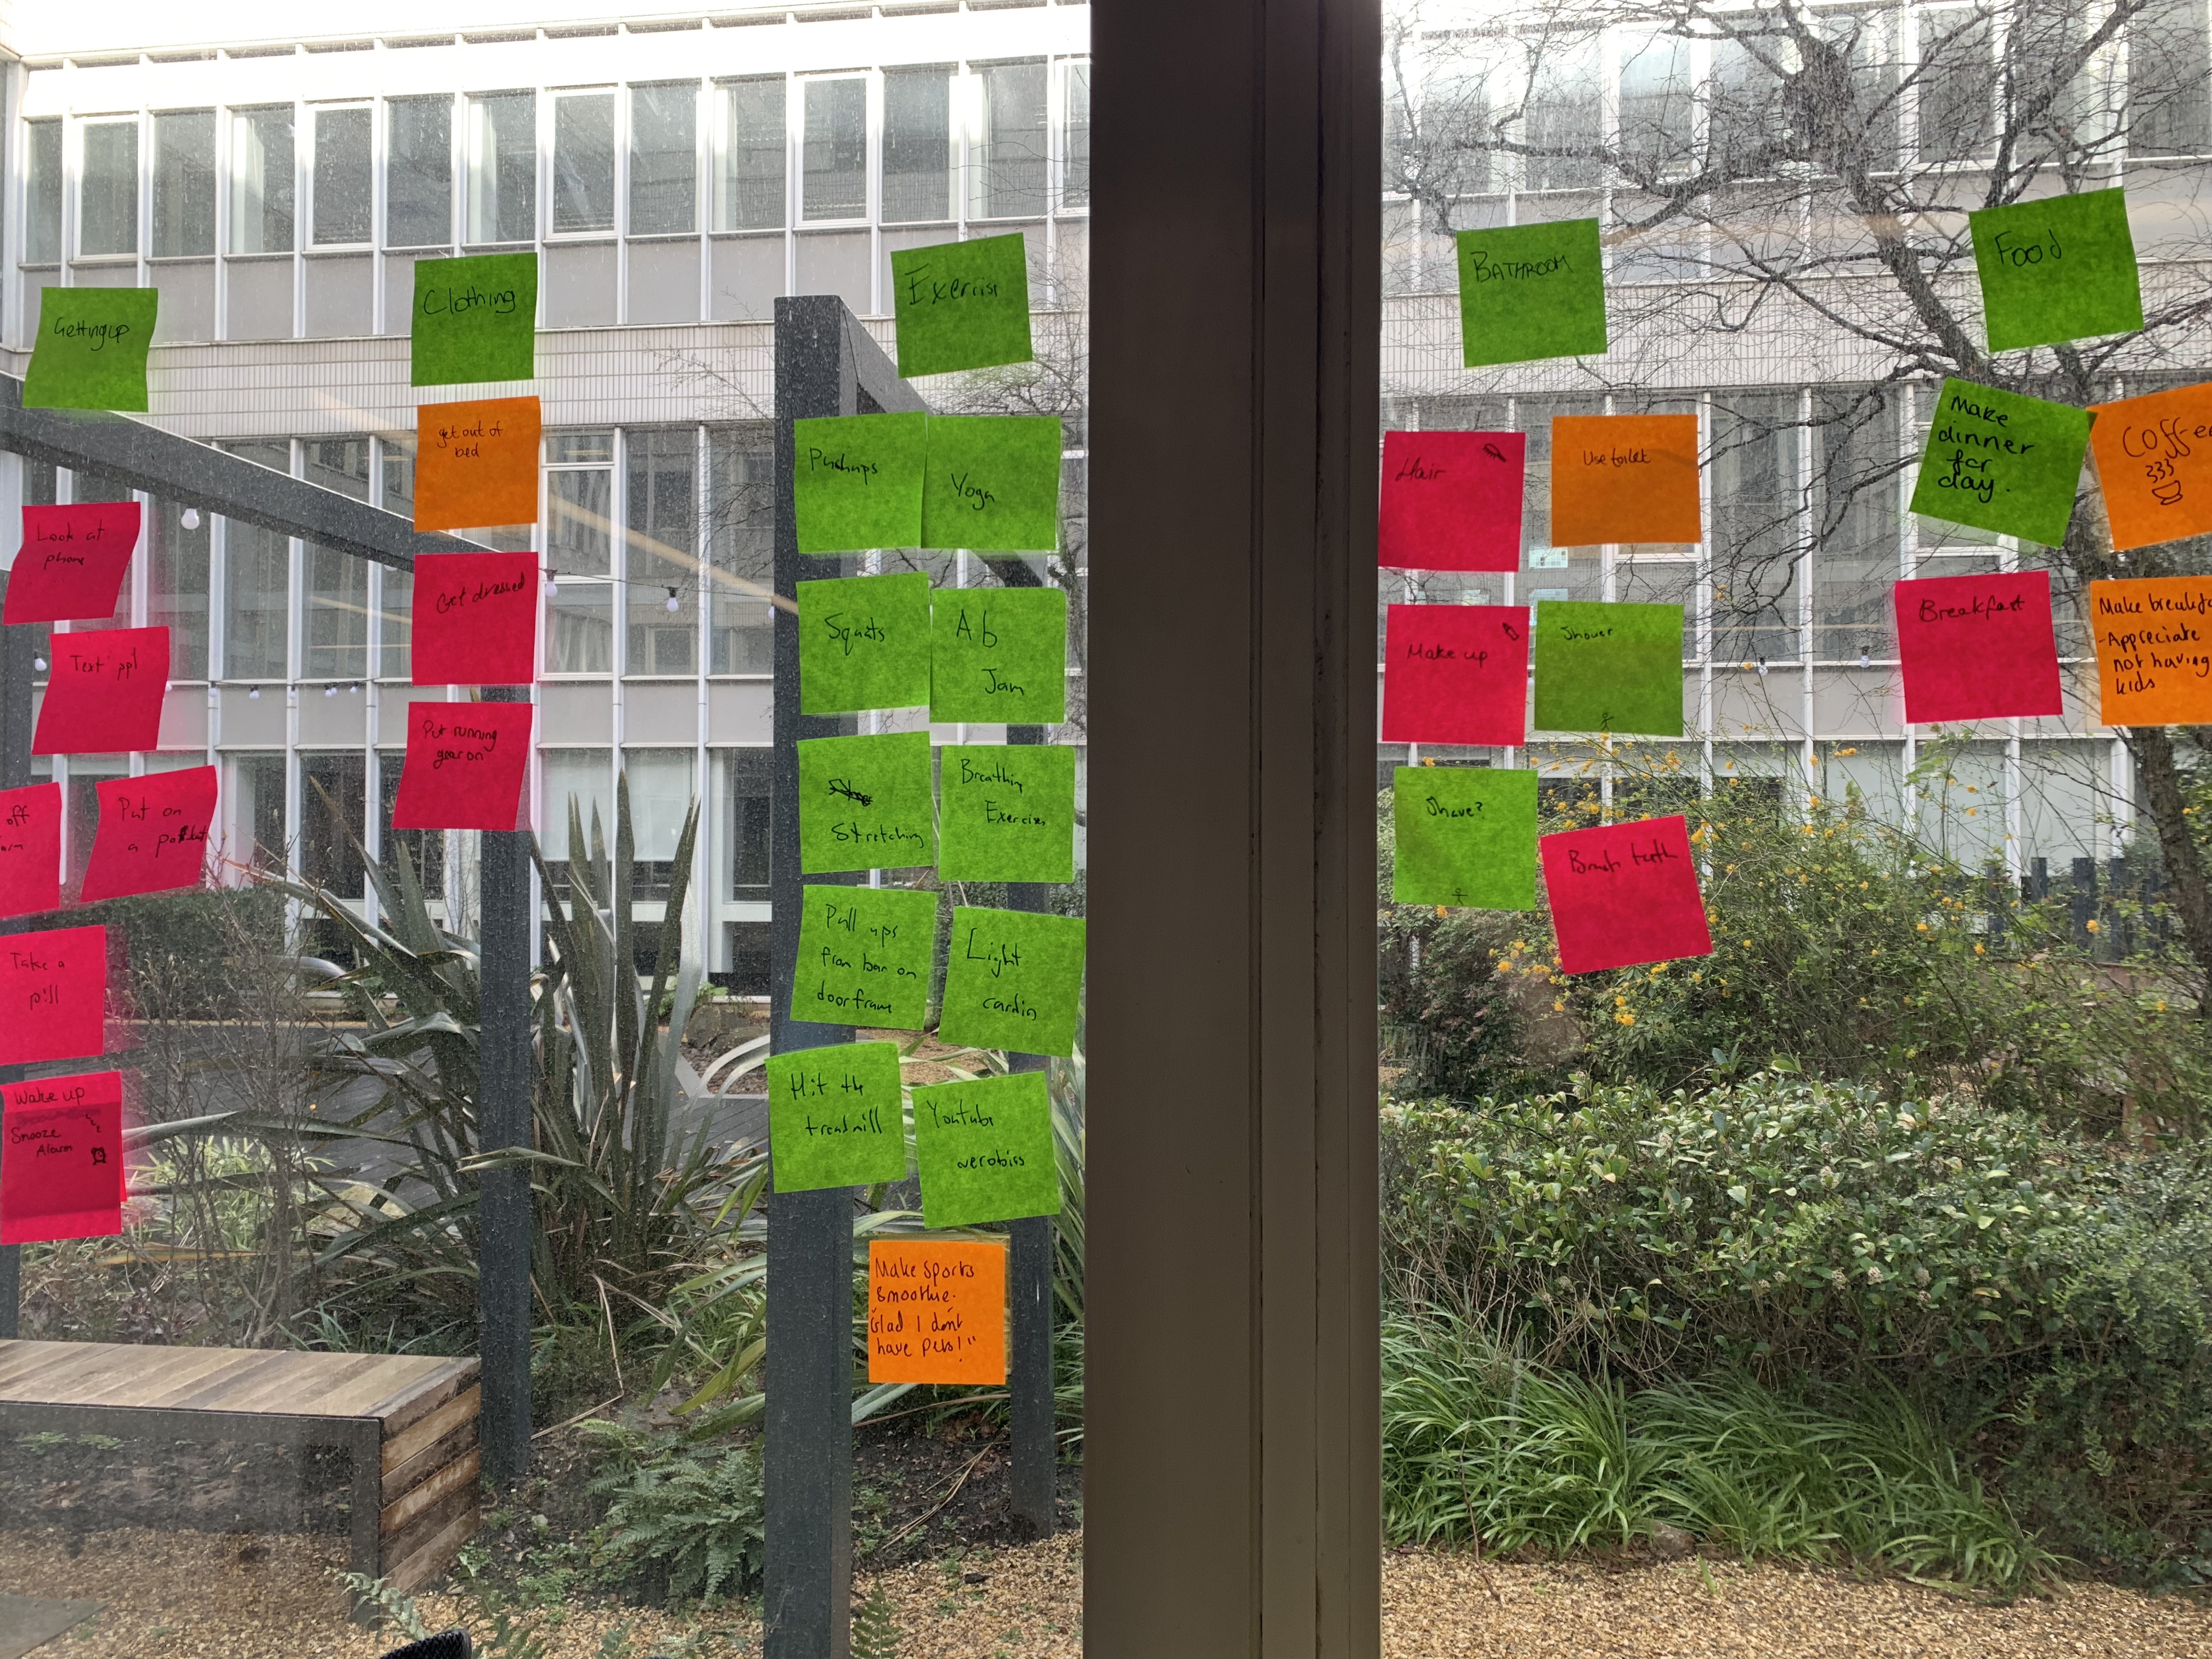 Getting up
Look at
phone
Text ppl
off
Put on
a
Take a
pill
Wake up
Snooze
Alarm
Clothing
get out of
bed
Get dressed
Put running
gear on
Exercise
Pushups
Yoga
Squats
Ab
Jam
Stretching
Breathing
Exercises
Pull ups
from bar on
doorframe
Light
cardio
Hit the
treadmill
Youtube
aerobics
Make Sports
Smoothie.
"Glad I don't
have pets!"
BATHROOM
Hair
Use toilet
Make up
Shower
Shave?
Brush teeth
Food
Make
dinner
for
day.
Coffee
Breakfast
Make breakfa
- Appreciate
not having
kids